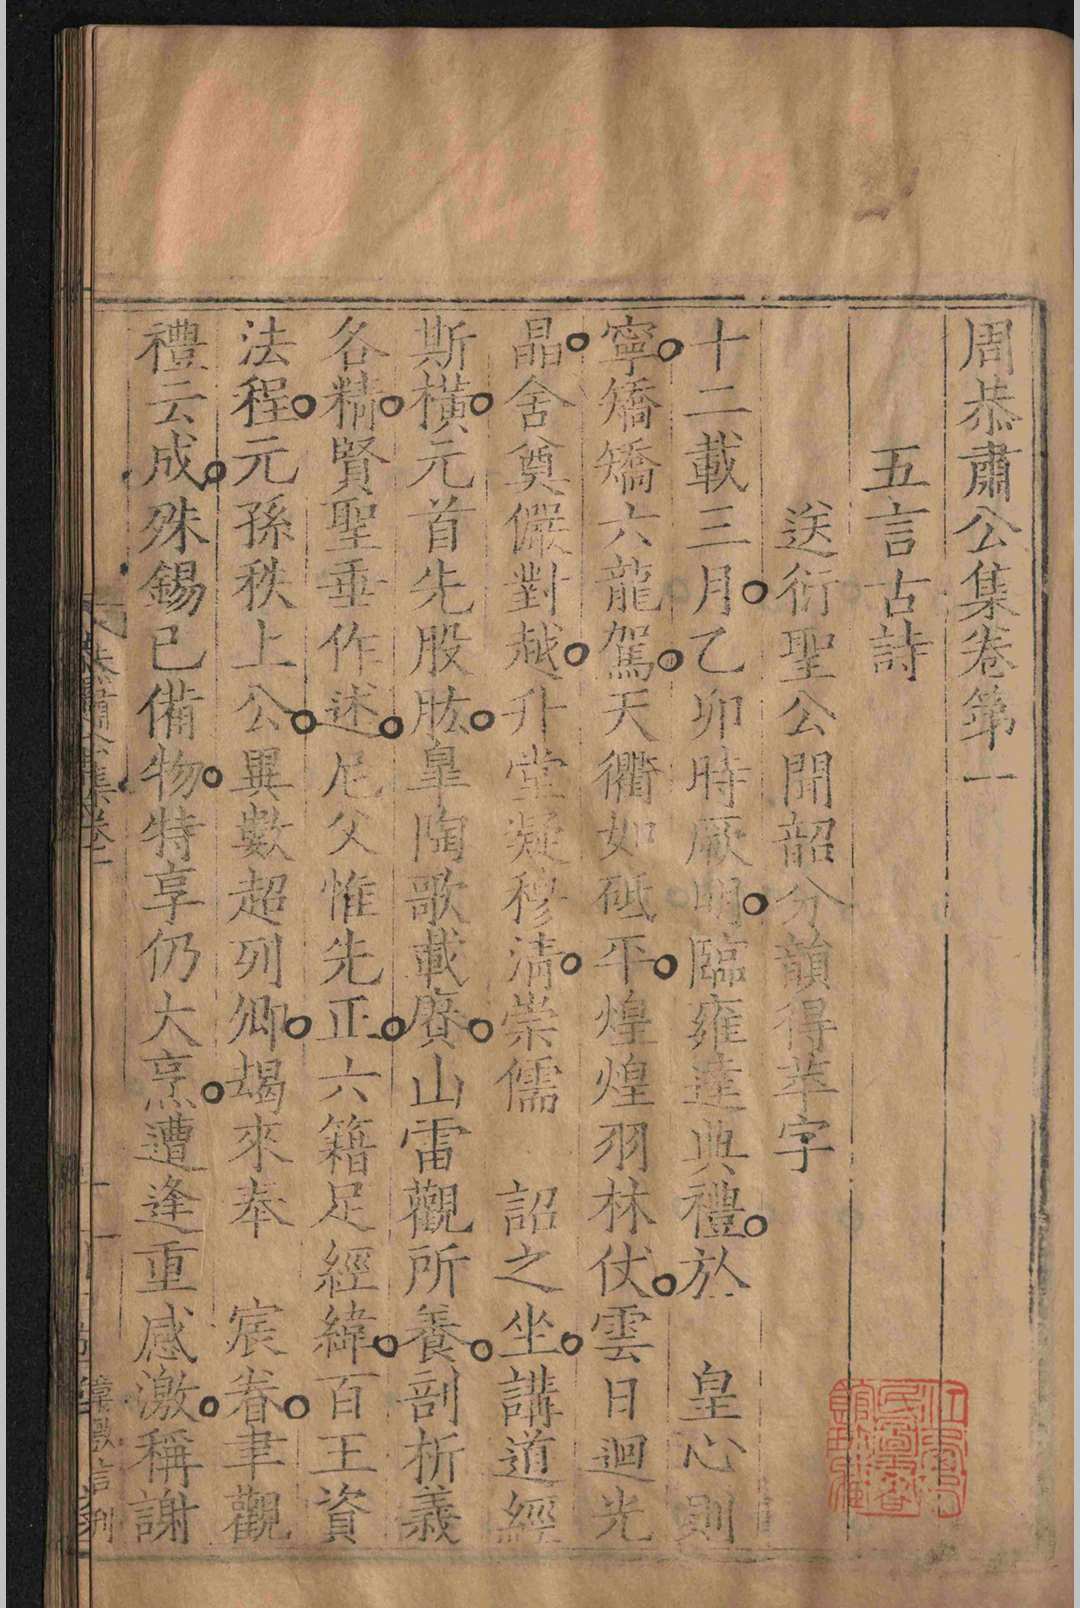 周恭肅公集卷第一
五言古詩
送衍聖公聞韶分韻得萃字
十二載三月乙卯時厥明臨雍達典禮於 皇心則
寧矯矯六龍駕天衢如砥平煌煌羽林伏雲日迴光
晶舍奠儼對越升堂凝穆清崇儒 詔之坐講道經
斯橫元首先股肱皐陶歌載賡山雷觀所養剖析義
各精賢聖垂作述尼父惟先正六籍足經緯百王資
法程元孫秩上公異數超列卿朅來奉 宸眷聿觀
禮云成殊錫已備物特享仍大烹遭逢重感激稱謝
恭肅公集卷一
一
章掞言刻